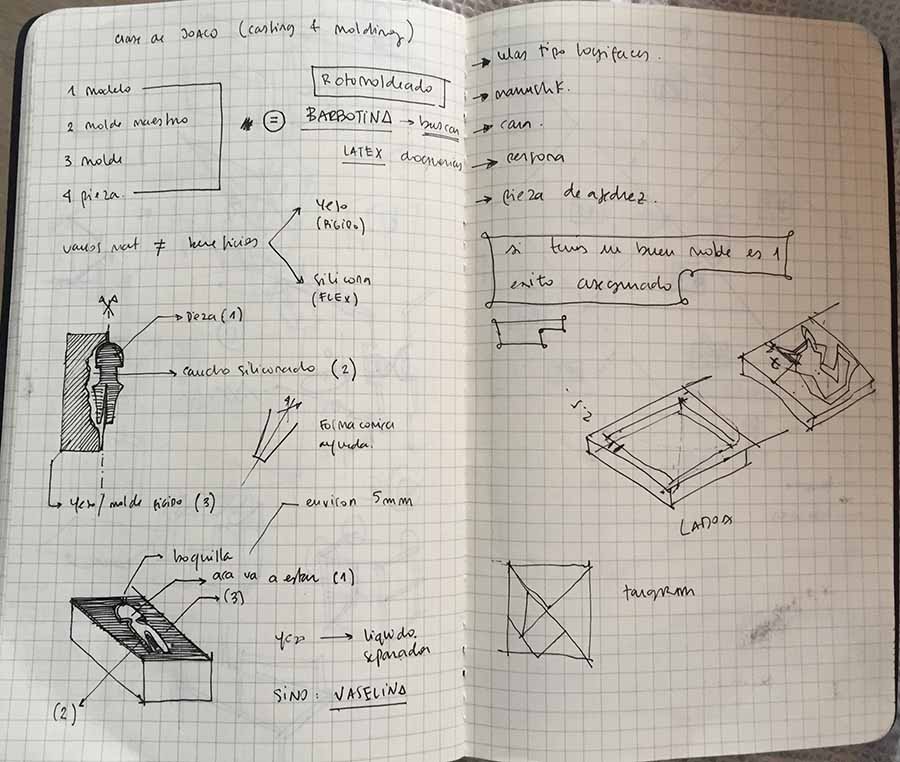 clase de JOACO (casting & molding)
1 modelo
2 molde maestro
3 molde
4 pieza
Rotomoldeado
= BARBOTINA → buscar
LATEX droguerias
varios mat ≠ beneficios
yeso
(RIGIDO)
silicona
(FLEX)
→ pieza (1)
→ caucho siliconado (2)
Forma conica
ayuda.
yeso / molde rigido (3)
environ 5mm
boquilla
aca va a estar (1)
(3)
(2)
yeso → liquido
separador
SINO: VASELINA
→ tipo logifaces.
→ cara.
→ persona
→ pieza de ajedrez.
si tenés un buen molde es 1
exito asegurado
LADOX
tangram